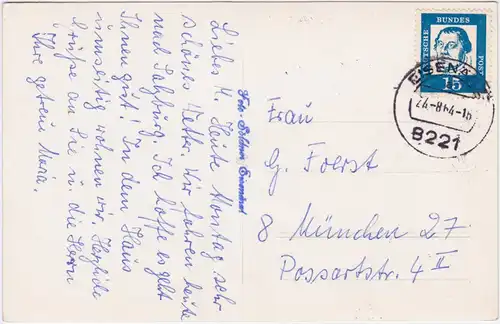 Liebes M. Heute Montag sehr
schönes Wetter. Wir fahren heute
nach Salzburg. Ich hoffe es geht
Ihnen gut! In dem Haus
umseitig wohnen wir. Herzliche
Grüsse an Sie u. die Herrn
Ihre getreue
Frau
G. Foerst
8 München 27
Possartstr. 4 II
DEUTSCHE BUNDES POST
15
24.-8.64-16
8221